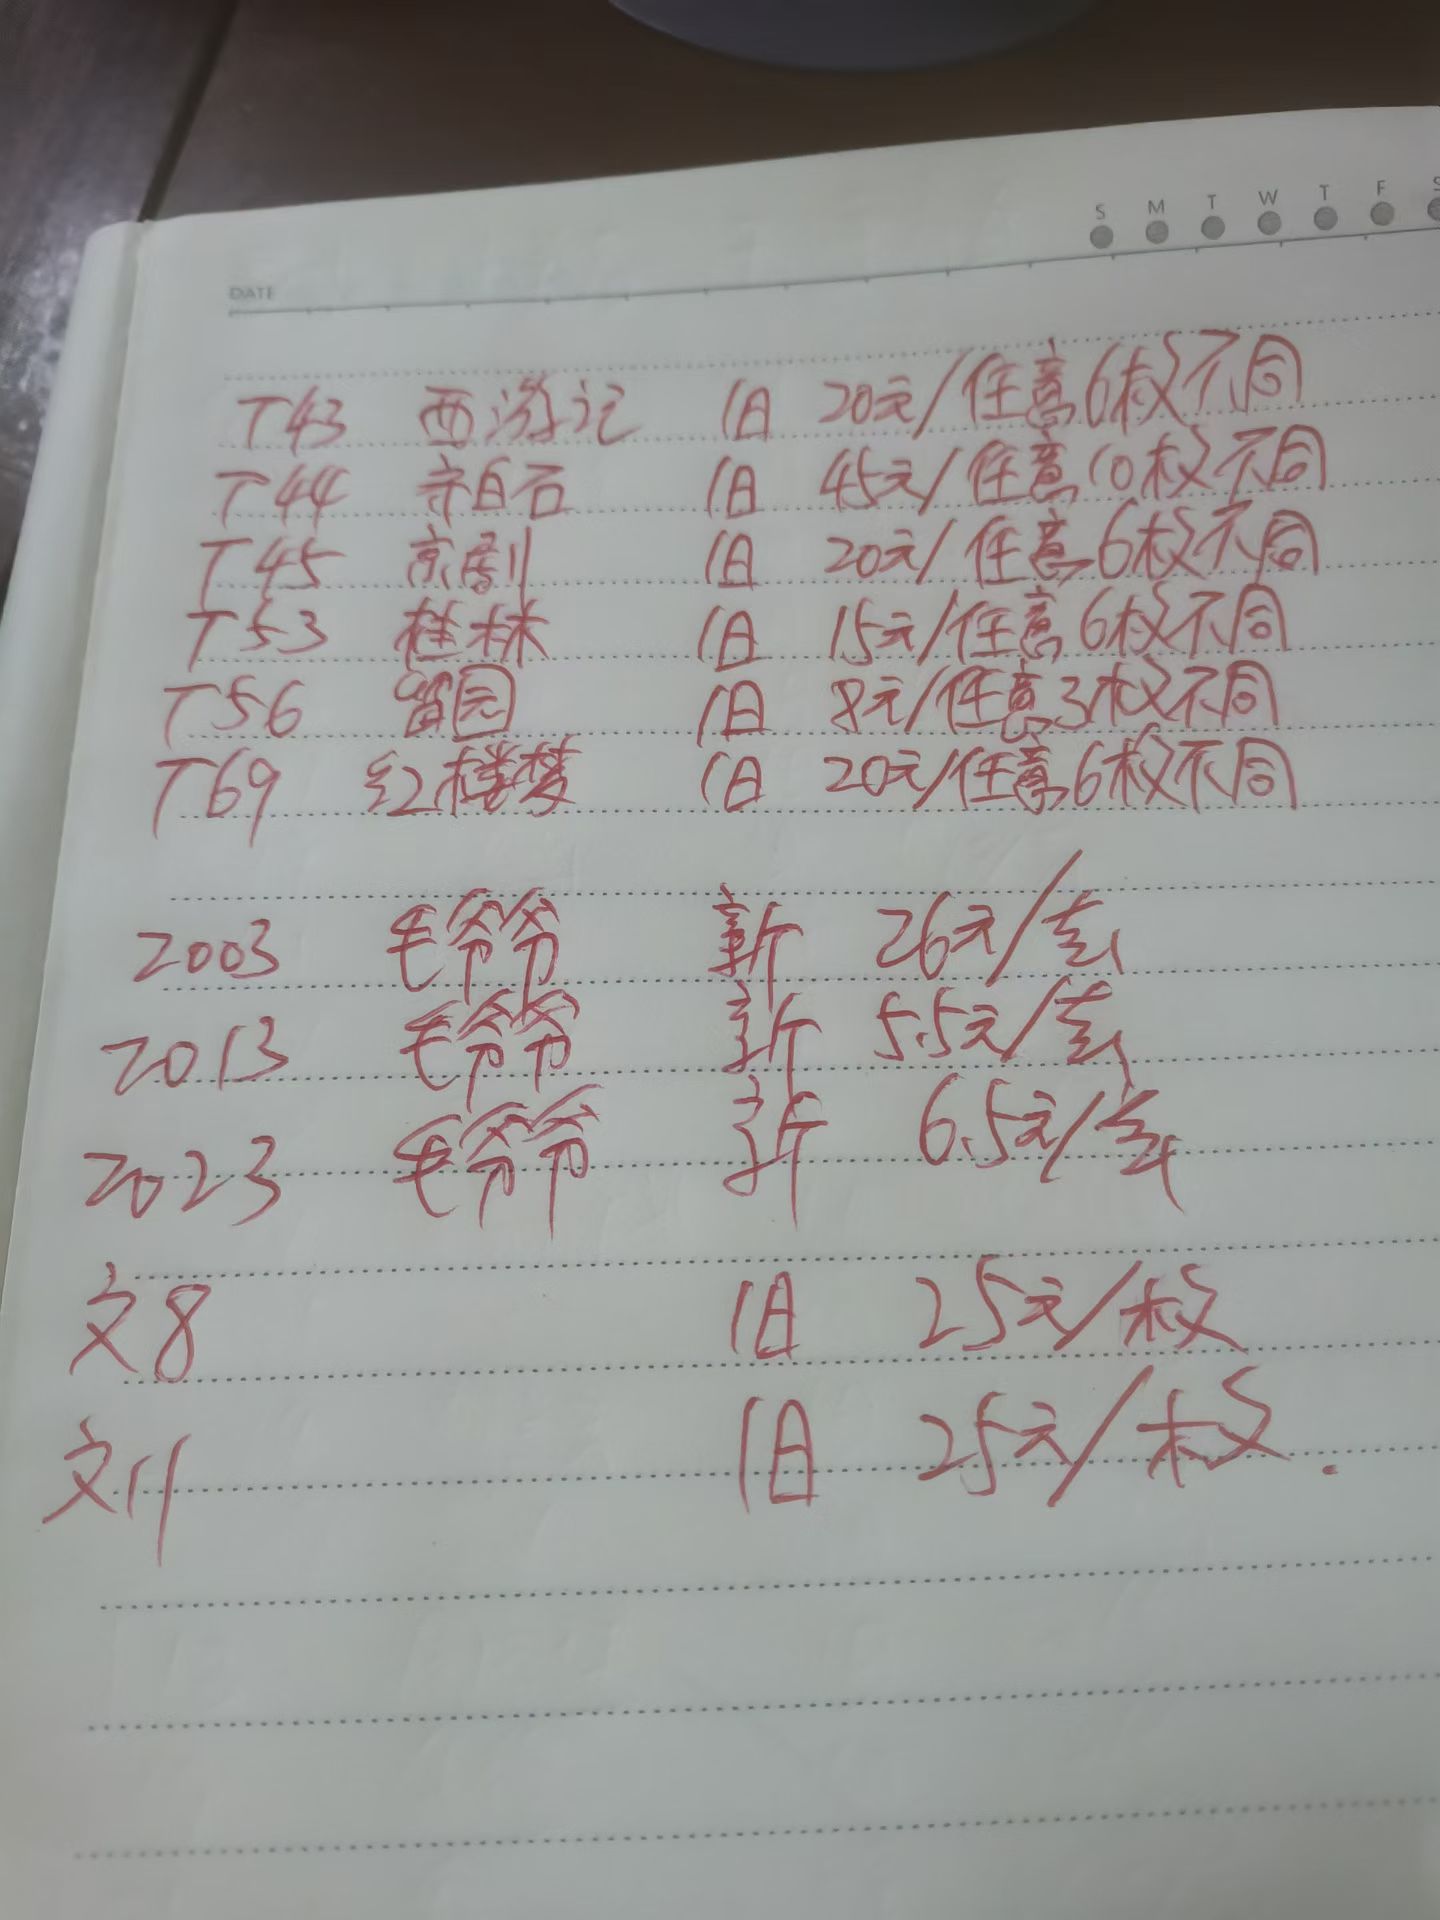 S M T W T F S
DATE
T43 西游记 旧 20元/任意6枚不同
T44 齐白石 旧 45元/任意10枚不同
T45 京剧 旧 20元/任意6枚不同
T53 桂林 旧 15元/任意6枚不同
T56 留园 旧 8元/任意3枚不同
T69 红楼梦 旧 20元/任意6枚不同
2003 毛爷爷 新 26元/套
2013 毛爷爷 新 5.5元/套
2023 毛爷爷 新 6.5元/套
文8 旧 25元/枚
文11 旧 25元/枚.